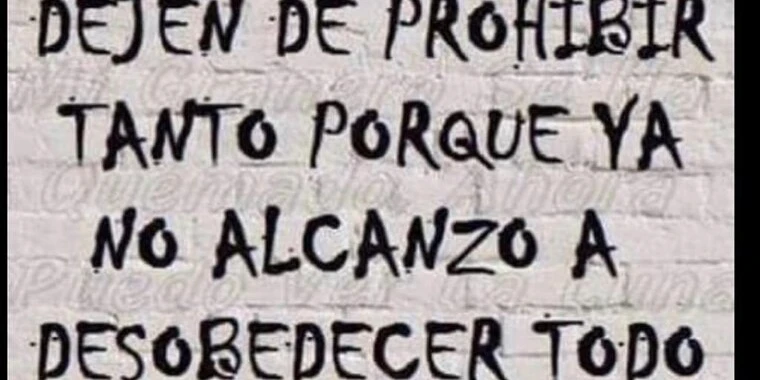 DEJEN DE PROHIBIR
Mi Granero Se Ha
TANTO PORQUE YA
Quemado, Ahora
NO ALCANZO A
Puedo Ver La Luna
DESOBEDECER TODO